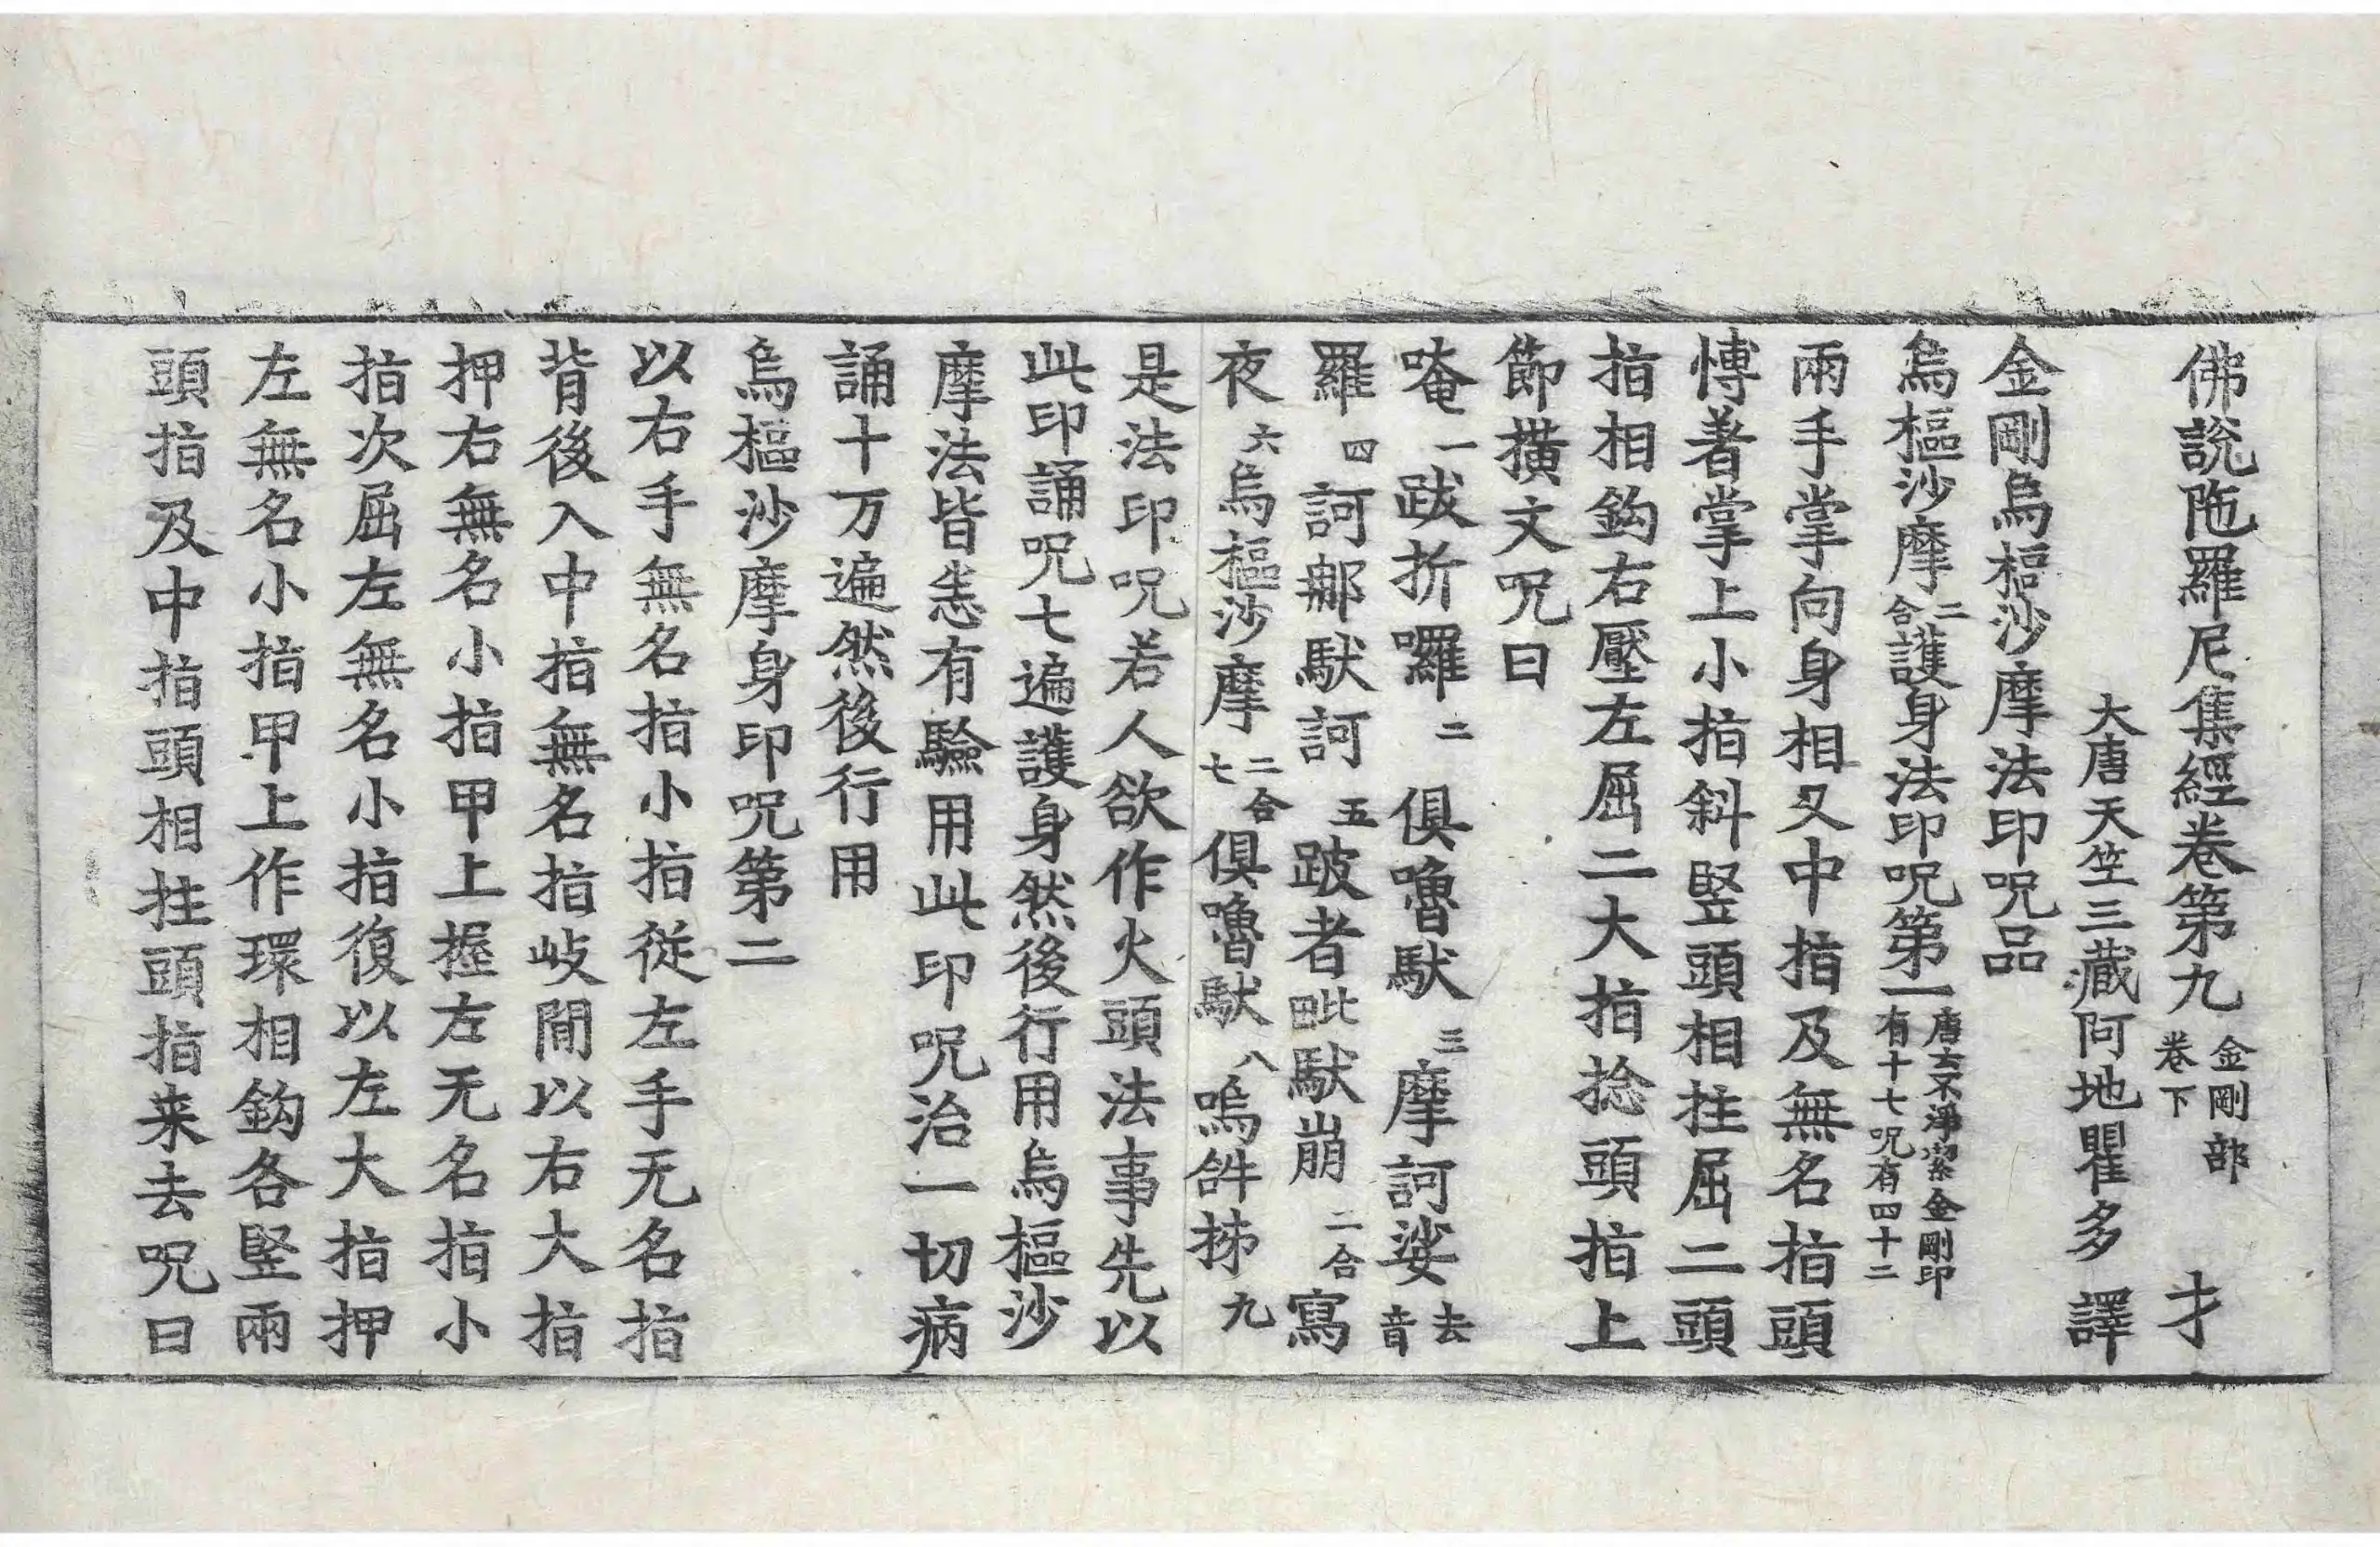 佛說陁羅尼集經卷第九 金剛部卷下 才
大唐天竺三藏阿地瞿多 譯
金剛烏樞沙摩法印呪品
烏樞沙摩二合護身法印呪第一唐云不淨潔金剛印有十七呪有四十二
兩手掌向身相叉中指及無名指頭
慱著掌上小指斜竪頭相拄屈二頭
指相鈎右壓左屈二大指捻頭指上
節撗文呪曰
唵一跋折囉二俱嚕馱三摩訶娑去音
羅四訶那馱訶五跛者毗馱崩二合寫
夜六烏樞沙摩二合七俱嚕馱八嗚𤙖抺九
是法印呪若人欲作火頭法事先以
此印誦呪七遍護身然後行用烏樞沙
摩法皆悉有驗用此印呪治一切病
誦十万遍然後行用
烏樞沙摩身印呪第二
以右手無名指小指從左手无名指
背後入中指無名指岐間以右大指
押右無名小指甲上握左无名指小
指次屈左無名小指復以左大指押
左無名小指甲上作環相鈎各竪兩
頭指及中指頭相拄頭指来去呪曰